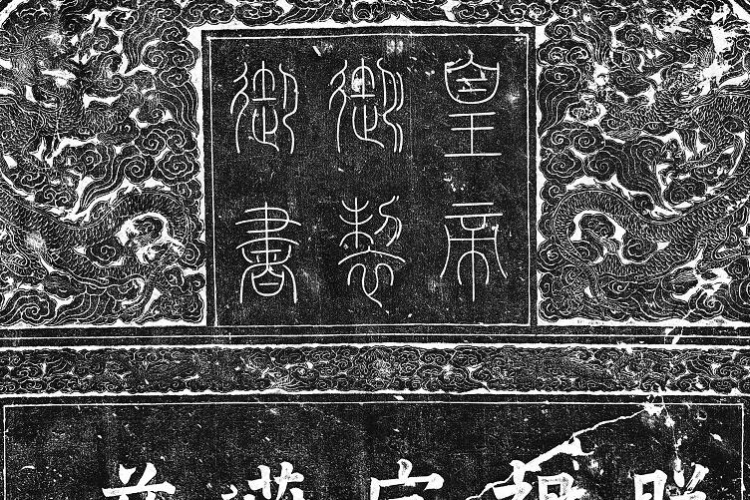 皇帝
御製
御書